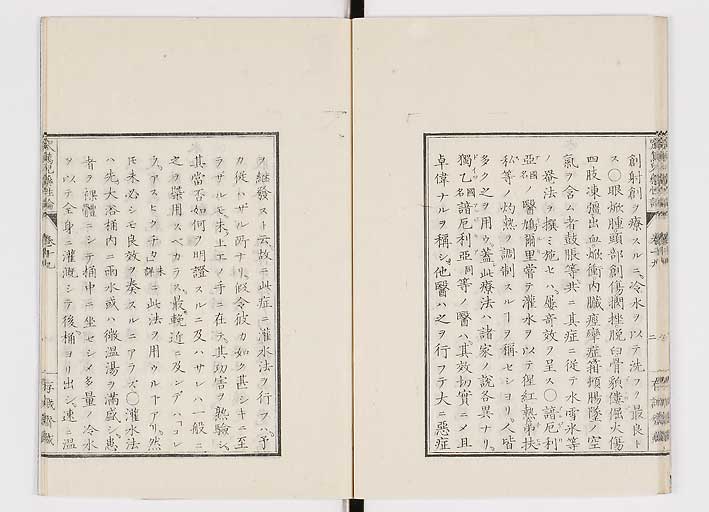 創射創ヲ療スルニ冷水ヲ以テ洗フヲ最良ト
ス〇眼焮腫頭部創傷
脱臼骨
火傷
四肢凍
出血焮衝内臓痙攣症
腸墜ノ空
氣ヲ含ム者鼓脹等共ニ其症ニ從テ水雪氷等
ノ
法ヲ撰ミ施セバ
奇效ヲ呈ス〇諳厄利
亞國名ノ醫
爾里常テ灌水ヲ以テ猩紅熱
扶
私等ノ灼熱ヲ調制スルヿヲ稱セシヨリ人皆
多ク之ヲ用ウ蓋此療法ハ諸家ノ説各異ナリ
獨乙國名諳厄利亞同等ノ醫ハ其效切實ニメ且
卓偉ナルヲ稱シ他醫ハ之ヲ行フテ大ニ悪症
ヲ継發スト云故ニ此症ニ灌水法ヲ行フハ予
カ從ハザル所ナリ假令彼カ如ク甚シキニ至
ラザルモ未上工ノ手ニ在テ其功害ヲ熟驗シ
其當否如何ヲ明證スルニ及ハサレハ一般ニ
之ヲ擧用スベカラス最輓近ニ及ンデハ
此法ヲ用ウルヿアリ然
モ未必シモ良效ヲ奏スルニアラズ〇灌水法
ハ先大浴桶内ニ雨水或ハ微温湯ヲ満盛シ患
者ヲ裸體ニシテ桶中ニ坐セシメ多量ノ冷水
ヲ以テ全身ニ灌漑シテ後桶ヨリ出シ速ニ温